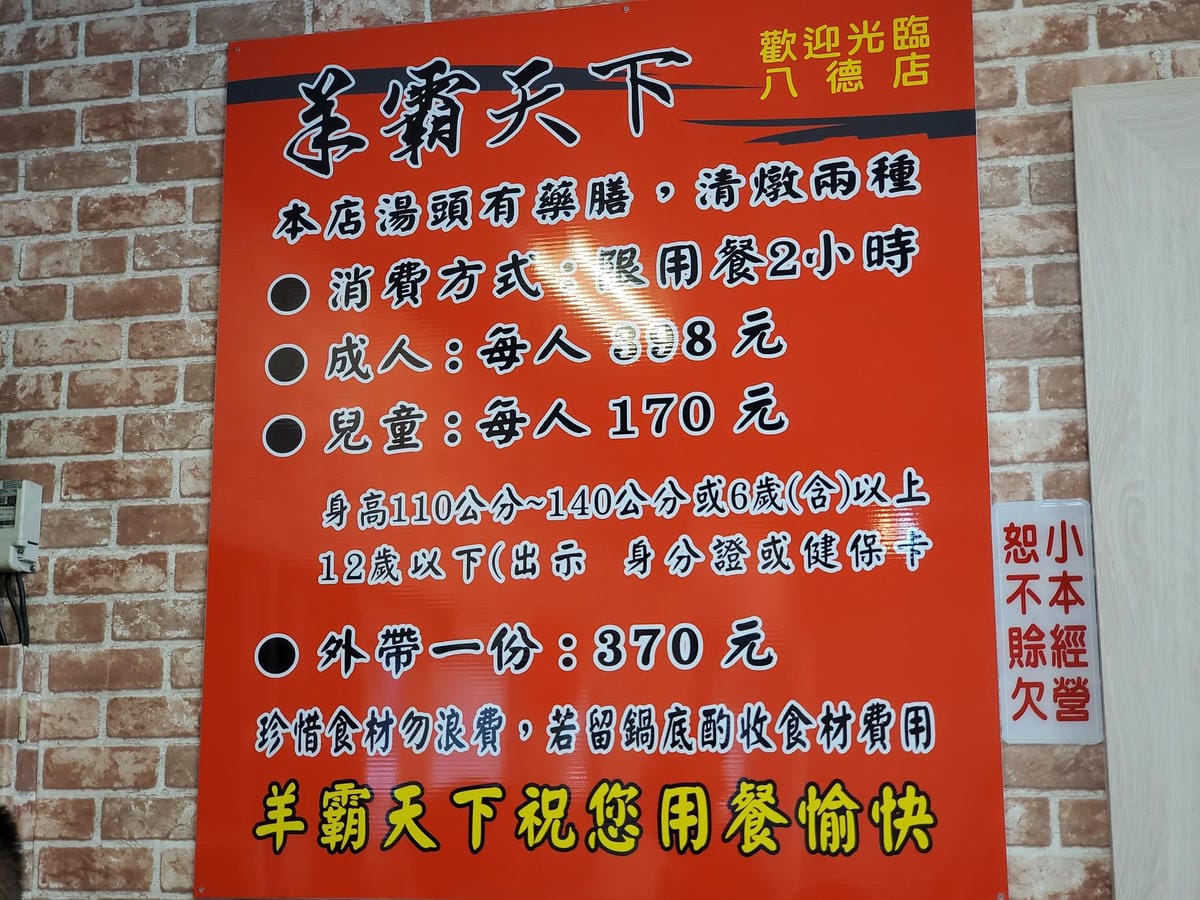 歡迎光臨
八德店
羊霸天下
本店湯頭有藥膳，清燉兩種
●消費方式：限用餐2小時
●成人：每人 398 元
●兒童：每人 170 元
身高110公分~140公分或6歲(含)以上
12歲以下(出示 身分證或健保卡
●外帶一份：370 元
珍惜食材勿浪費，若留鍋底酌收食材費用
羊霸天下祝您用餐愉快
小本經營
恕不賒欠